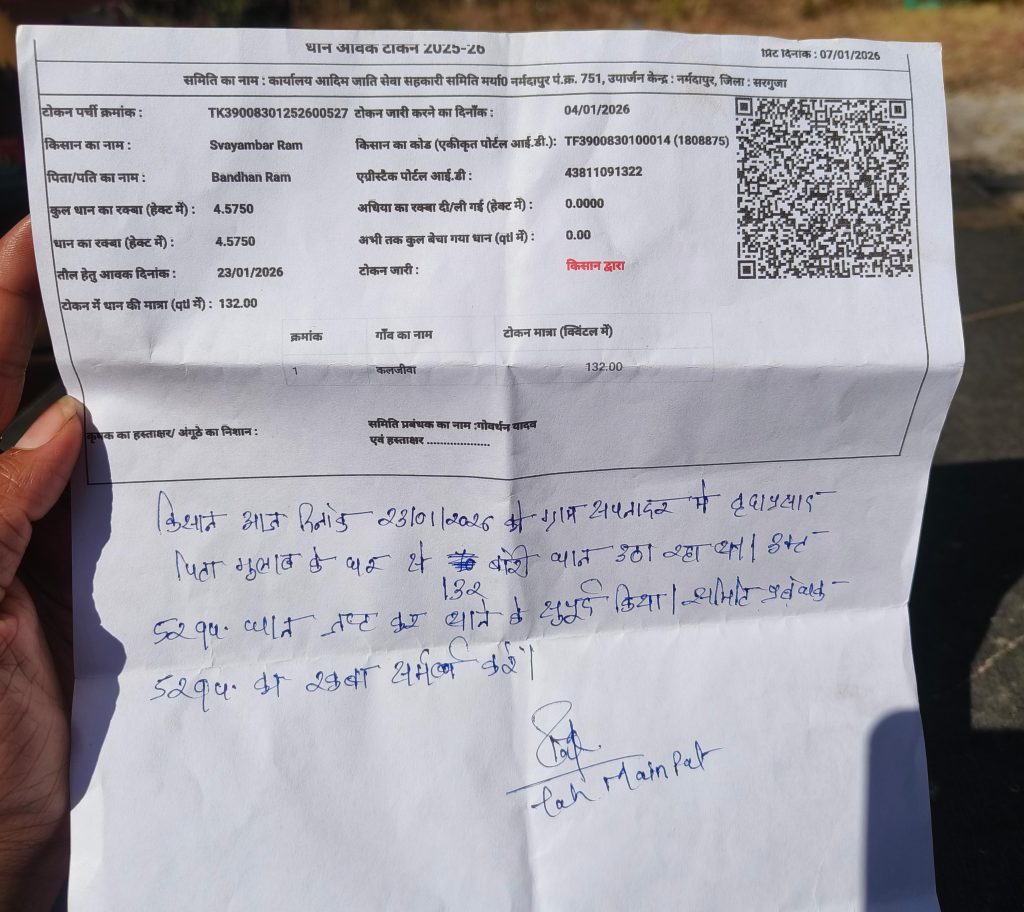 धान आवक टोकन 2025-26
प्रिंट दिनांक : 07/01/2026
समिति का नाम : कार्यालय आदिम जाति सेवा सहकारी समिति मर्या0 नर्मदापुर पं.क्र. 751, उपार्जन केन्द्र : नर्मदापुर, जिला : सरगुजा
टोकन पर्ची क्रमांक : TK39008301252600527 टोकन जारी करने का दिनाँक : 04/01/2026
किसान का नाम : Svayambar Ram किसान का कोड (एकीकृत पोर्टल आई.डी.): TF3900830100014 (1808875)
पिता/पति का नाम : Bandhan Ram एग्रीस्टैक पोर्टल आई.डी : 43811091322
कुल धान का रक्बा (हेक्ट में) : 4.5750 अधिया का रक्बा दी/ली गई (हेक्ट में) : 0.0000
धान का रक्बा (हेक्ट में) : 4.5750 अभी तक कुल बेचा गया धान (qtl में) : 0.00
तौल हेतु आवक दिनांक : 23/01/2026 टोकन जारी : किसान द्वारा
टोकन में धान की मात्रा (qtl में) : 132.00
क्रमांक गाँव का नाम टोकन मात्रा (क्विंटल में)
1 कलजीवा 132.00
कृषक का हस्ताक्षर/ अंगूठे का निशान : समिति प्रबंधक का नाम :गोवर्धन यादव
एवं हस्ताक्षर ...................
किसान आज दिनांक 23/01/2026 को ग्राम सपनादर में
पिता गुलाब के घर से 132 बोरी धान उठा रहा था। उक्त
52 धान जप्त कर थाने के सुपुर्द किया। समिति प्रबंधक
52 का रकबा समर्पण करें।
Tah MainPat